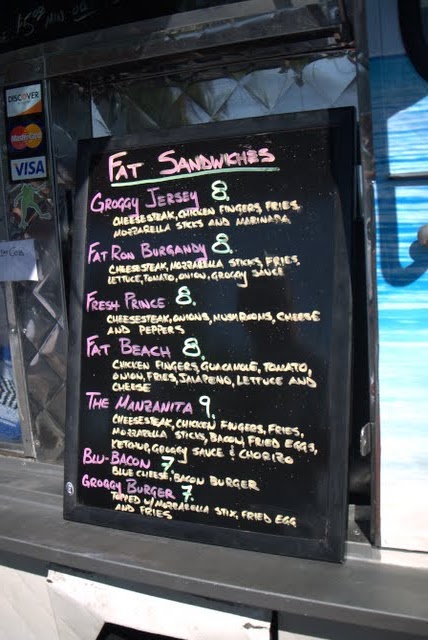 DISCOVER
MasterCard
VISA
FAT SANDWICHES
GROGGY JERSEY 8.
CHEESESTEAK, CHICKEN FINGERS, FRIES,
MOZZARELLA STICKS AND MARINARA
FAT RON BURGANDY 8.
CHEESESTEAK, MOZZARELLA STICKS, FRIES,
LETTUCE, TOMATO, ONION, GROGGY SAUCE
FRESH PRINCE 8.
CHEESESTEAK, ONIONS, MUSHROOMS, CHEESE
AND PEPPERS
FAT BEACH 8.
CHICKEN FINGERS, GUACAMOLE, TOMATO,
ONION, FRIES, JALAPENO, LETTUCE AND
CHEESE
THE MANZANITA 9.
CHEESESTEAK, CHICKEN FINGERS, FRIES,
MOZZARELLA STICKS, BACON, FRIED EGGS,
KETCHUP, GROGGY SAUCE & CHORIZO
BLU-BACON 7
BLUE CHEESE, BACON BURGER
GROGGY BURGER 7.
TOPPED W/ MOZZARELLA STIX, FRIED EGG
AND FRIES